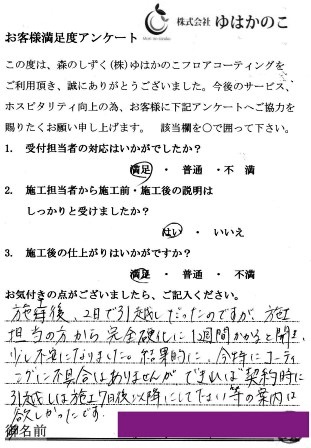 株式会社 ゆはかのこ
お客様満足度アンケート
この度は、森のしずく(株)ゆはかのこフロアコーティングを
ご利用頂き、誠にありがとうございました。今後のサービス、
ホスピタリティ向上の為、お客様に下記アンケートへご協力を
賜りたくお願い申し上げます。 該当欄を○で囲って下さい。
1. 受付担当者の対応はいかがでしたか?
満足 ・ 普通 ・ 不 満
2. 施工担当者から施工前・施工後の説明は
しっかりと受けましたか?
はい ・ いいえ
3. 施工後の仕上がりはいかがですか?
満足 ・ 普通 ・ 不 満
お気付きの点がございましたら、ご記入ください。
施工後、2日で引越しだったのですが、施工
担当の方から完全硬化に1週間かかると聞き、
少し不安になりました。結果的に、今特にコーティ
ングに不具合はありませんが、できれば契約時に
引越しは施工7日後以降にして下さい等の案内は
欲しかったです。
御名前